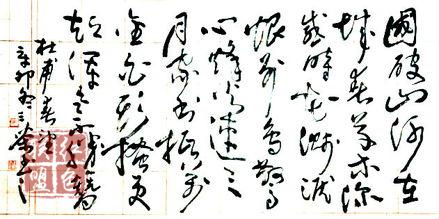 國破山河在
城春草木深
感時花濺淚
恨别鳥驚
心烽火連三
月家書抵萬
金白頭搔更
短渾欲不勝簪
杜甫春望
辛卯冬
红色
盟